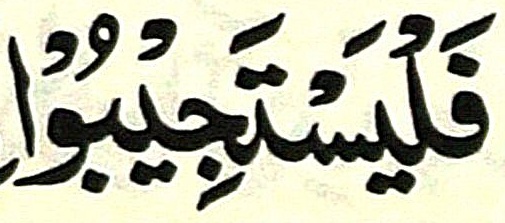 فَلْيَسْتَجِيْبُوْا